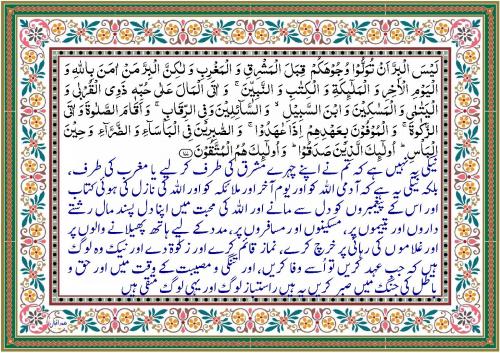 لَيْسَ الْبِرَّ اَنْ تُوَلُّوْا وُجُوْهَكُمْ قِبَلَ الْمَشْرِقِ وَ الْمَغْرِبِ وَ لٰكِنَّ الْبِرَّ مَنْ اٰمَنَ بِاللّٰهِ وَ
الْيَوْمِ الْاٰخِرِ وَ الْمَلٰٓئِكَةِ وَ الْكِتٰبِ وَ النَّبِيّٖنَ ۚ وَ اٰتَى الْمَالَ عَلٰى حُبِّهٖ ذَوِي الْقُرْبٰى وَ
الْيَتٰمٰى وَ الْمَسٰكِيْنَ وَ ابْنَ السَّبِيْلِ ۙ وَ السَّآئِلِيْنَ وَ فِي الرِّقَابِ ۚ وَ اَقَامَ الصَّلٰوةَ وَ اٰتَى
الزَّكٰوةَ ۚ وَ الْمُوْفُوْنَ بِعَهْدِهِمْ اِذَا عٰهَدُوْا ۚ وَ الصّٰبِرِيْنَ فِي الْبَاْسَآءِ وَ الضَّرَّآءِ وَ حِيْنَ
الْبَاْسِ ؕ اُولٰٓئِكَ الَّذِيْنَ صَدَقُوْا ؕ وَ اُولٰٓئِكَ هُمُ الْمُتَّقُوْنَ ﴿۱۷۷﴾
نیکی یہ نہیں ہے کہ تم نے اپنے چہرے مشرق کی طرف کر لیے یا مغرب کی طرف،
بلکہ نیکی یہ ہے کہ آدمی اللہ کو اور یوم آخر اور ملائکہ کو اور اللہ کی نازل کی ہوئی کتاب
اور اس کے پیغمبروں کو دل سے مانے اور اللہ کی محبت میں اپنا دل پسند مال رشتے
داروں اور یتیموں پر، مسکینوں اور مسافروں پر، مدد کے لیے ہاتھ پھیلانے والوں پر
اور غلاموں کی رہائی پر خرچ کرے، نماز قائم کرے اور زکوٰۃ دے اور نیک وہ لوگ
ہیں کہ جب عہد کریں تو اُسے وفا کریں، اور تنگی و مصیبت کے وقت میں اور حق و
باطل کی جنگ میں صبر کریں یہ ہیں راستباز لوگ اور یہی لوگ متقی ہیں